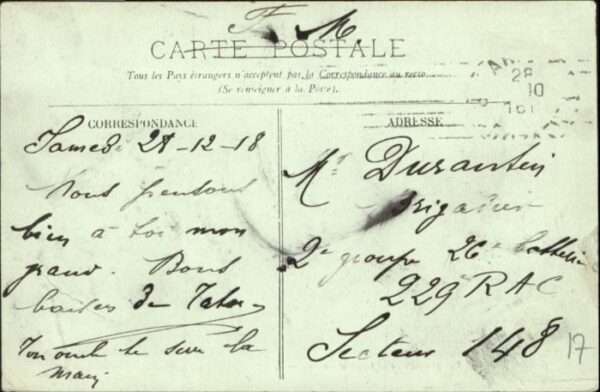 F. M.
CARTE POSTALE
Tous les Pays étrangers n'acceptent pas la Correspondance au recto
(Se renseigner à la Poste)
CORRESPONDANCE
Samedi 28-12-18
Nous pensons
bien à toi mon
grand. Bons
baisers de
Ton oncle te serre la
main
ADRESSE
28
10
Mr Durantin
Brigadier
2e groupe 26e batterie
229e RAC
Secteur 148
17